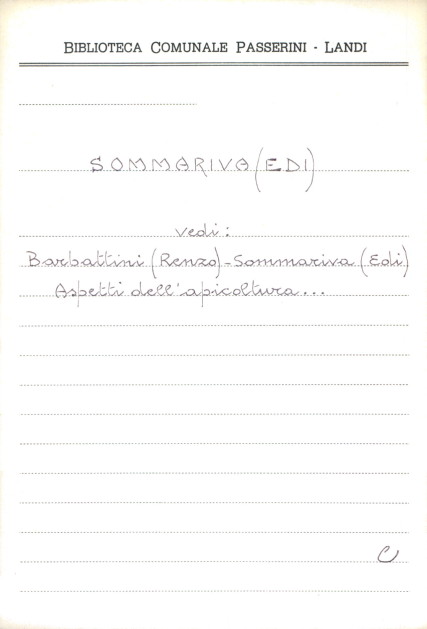 BIBLIOTECA COMUNALE PASSERINI - LANDI
SOMMARIVA (EDI)
vedi:
Barbattini (Renzo) - Sommariva (Edi)
Aspetti dell'apicoltura...